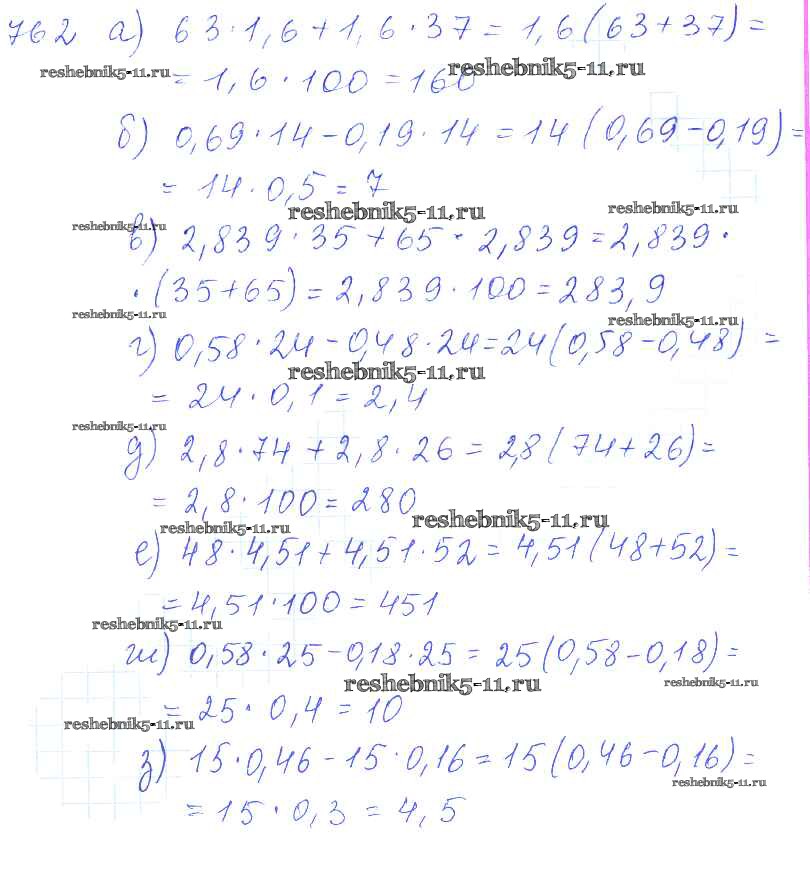 762 а) 63·1,6+1,6·37=1,6(63+37)=
reshebnik5-11.ru
=1,6·100=160
reshebnik5-11.ru
б) 0,69·14-0,19·14=14(0,69-0,19)=
=14·0,5=7
reshebnik5-11.ru
reshebnik5-11.ru
reshebnik5-11.ru
в) 2,839·35+65·2,839=2,839·
·(35+65)=2,839·100=283,9
reshebnik5-11.ru
reshebnik5-11.ru
г) 0,58·24-0,48·24=24(0,58-0,48)=
reshebnik5-11.ru
=24·0,1=2,4
reshebnik5-11.ru
д) 2,8·74+2,8·26=2,8(74+26)=
=2,8·100=280
reshebnik5-11.ru
reshebnik5-11.ru
е) 48·4,51+4,51·52=4,51(48+52)=
=4,51·100=451
reshebnik5-11.ru
ж) 0,58·25-0,18·25=25(0,58-0,18)=
reshebnik5-11.ru
reshebnik5-11.ru
=25·0,4=10
reshebnik5-11.ru
з) 15·0,46-15·0,16=15(0,46-0,16)=
reshebnik5-11.ru
=15·0,3=4,5